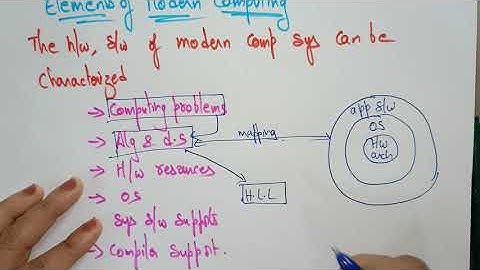 Elements of Modern Computing
The h/w, s/w of modern comp sys can be
characterized
→ Computing problems
→ Alg & d.s
→ H/w resources
→ OS
Sys s/w supports
→ Compiler Support.
mapping
H.L.L
app s/w
OS
Hw
arch